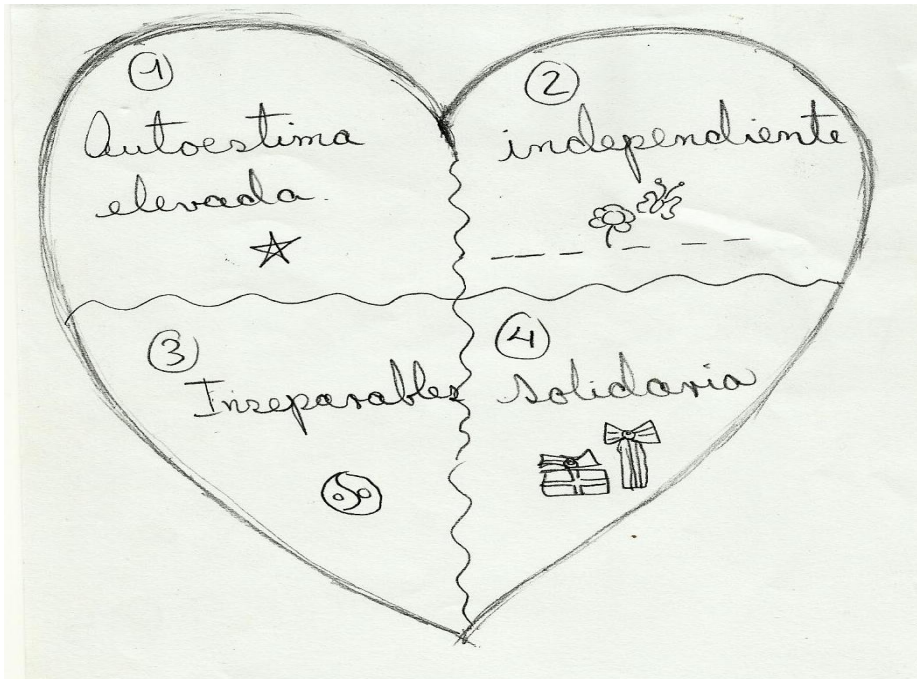 1
Autoestima
elevada.
2
independiente
3
Inseparables
4
Solidaria